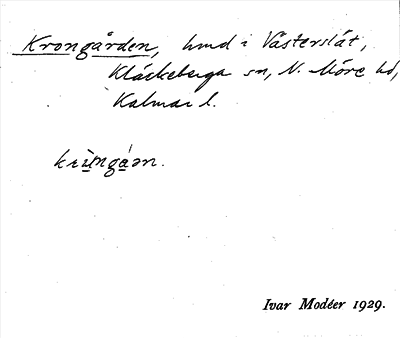 Krongården, hmd i Västerslät,
Kläckeberga sn, N. Möre hd,
Kalmar l.
krùngán.
Ivar Modéer 1929.